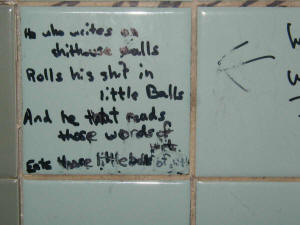 He who writes on
shithouse walls
Rolls his shit in
little Balls
And he that reads
those words of
wit
Eats those little balls of